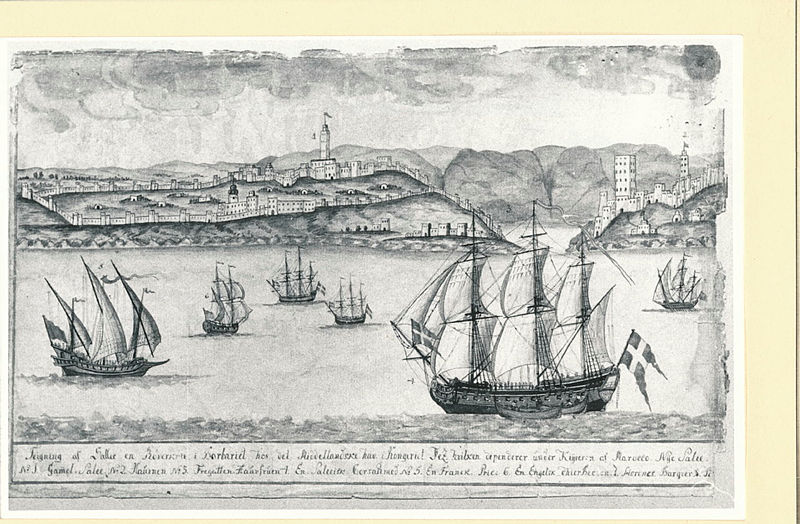 Teigning af Sallee en Røverstæt i Barbariet hos det Middellandske hav i Kongeriet Fez hvilken dependerer under Keiseren af Marocco. Nÿe Salee
No 1. Gamel Salee No 2. Hafnen No 3. Fregatten Haufrüen 4. En Saleetisk Corsair med No 5. En Fransk Prise 6. En Engelsk